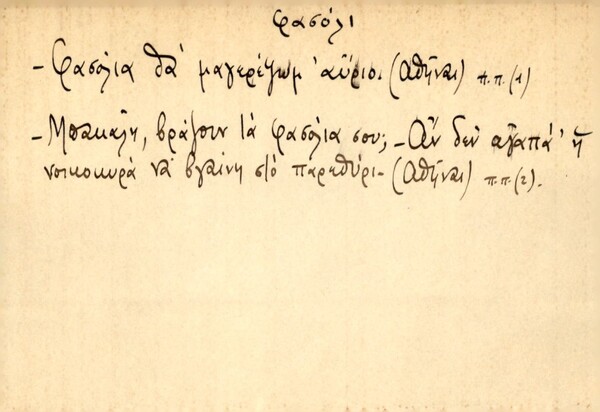 φασόλι
- Φασόλια θα' μαγερέψωμ' αὔριο. (Ἀθῆναι) π.π. (1)
- Μπακάλη, βράζουν τά φασόλια σου; - Ἄν δέν ἀγαπά' ἡ
νοικοκυρά νά βγαίνῃ στό παρεθύρι. (Ἀθῆναι) π.π. (2).